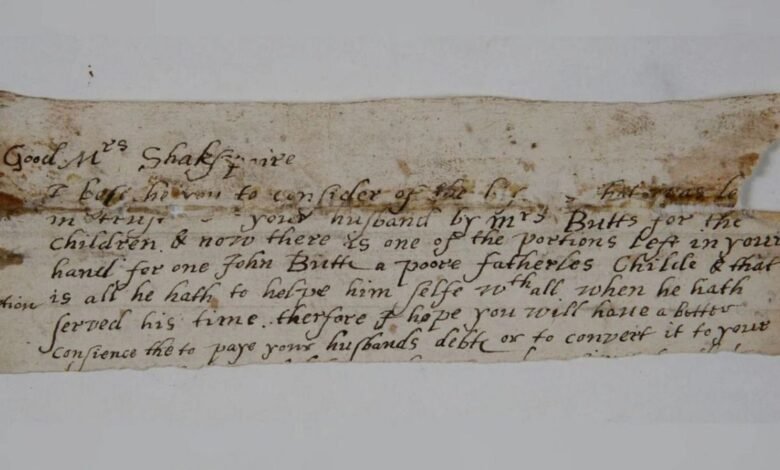 Good Mrs Shakspaire
I besechᵉ you to consider of the
in trust your husband by mrs Butts for the
Children & now there is one of the portions left in your
hand for one John Butts a poore fatherles Childe & that
tion is all he hath to helpe him selfe wth all when he hath
served his time therfore I hope you will have a better
consience the to paye your husbands debts or to convert it to your